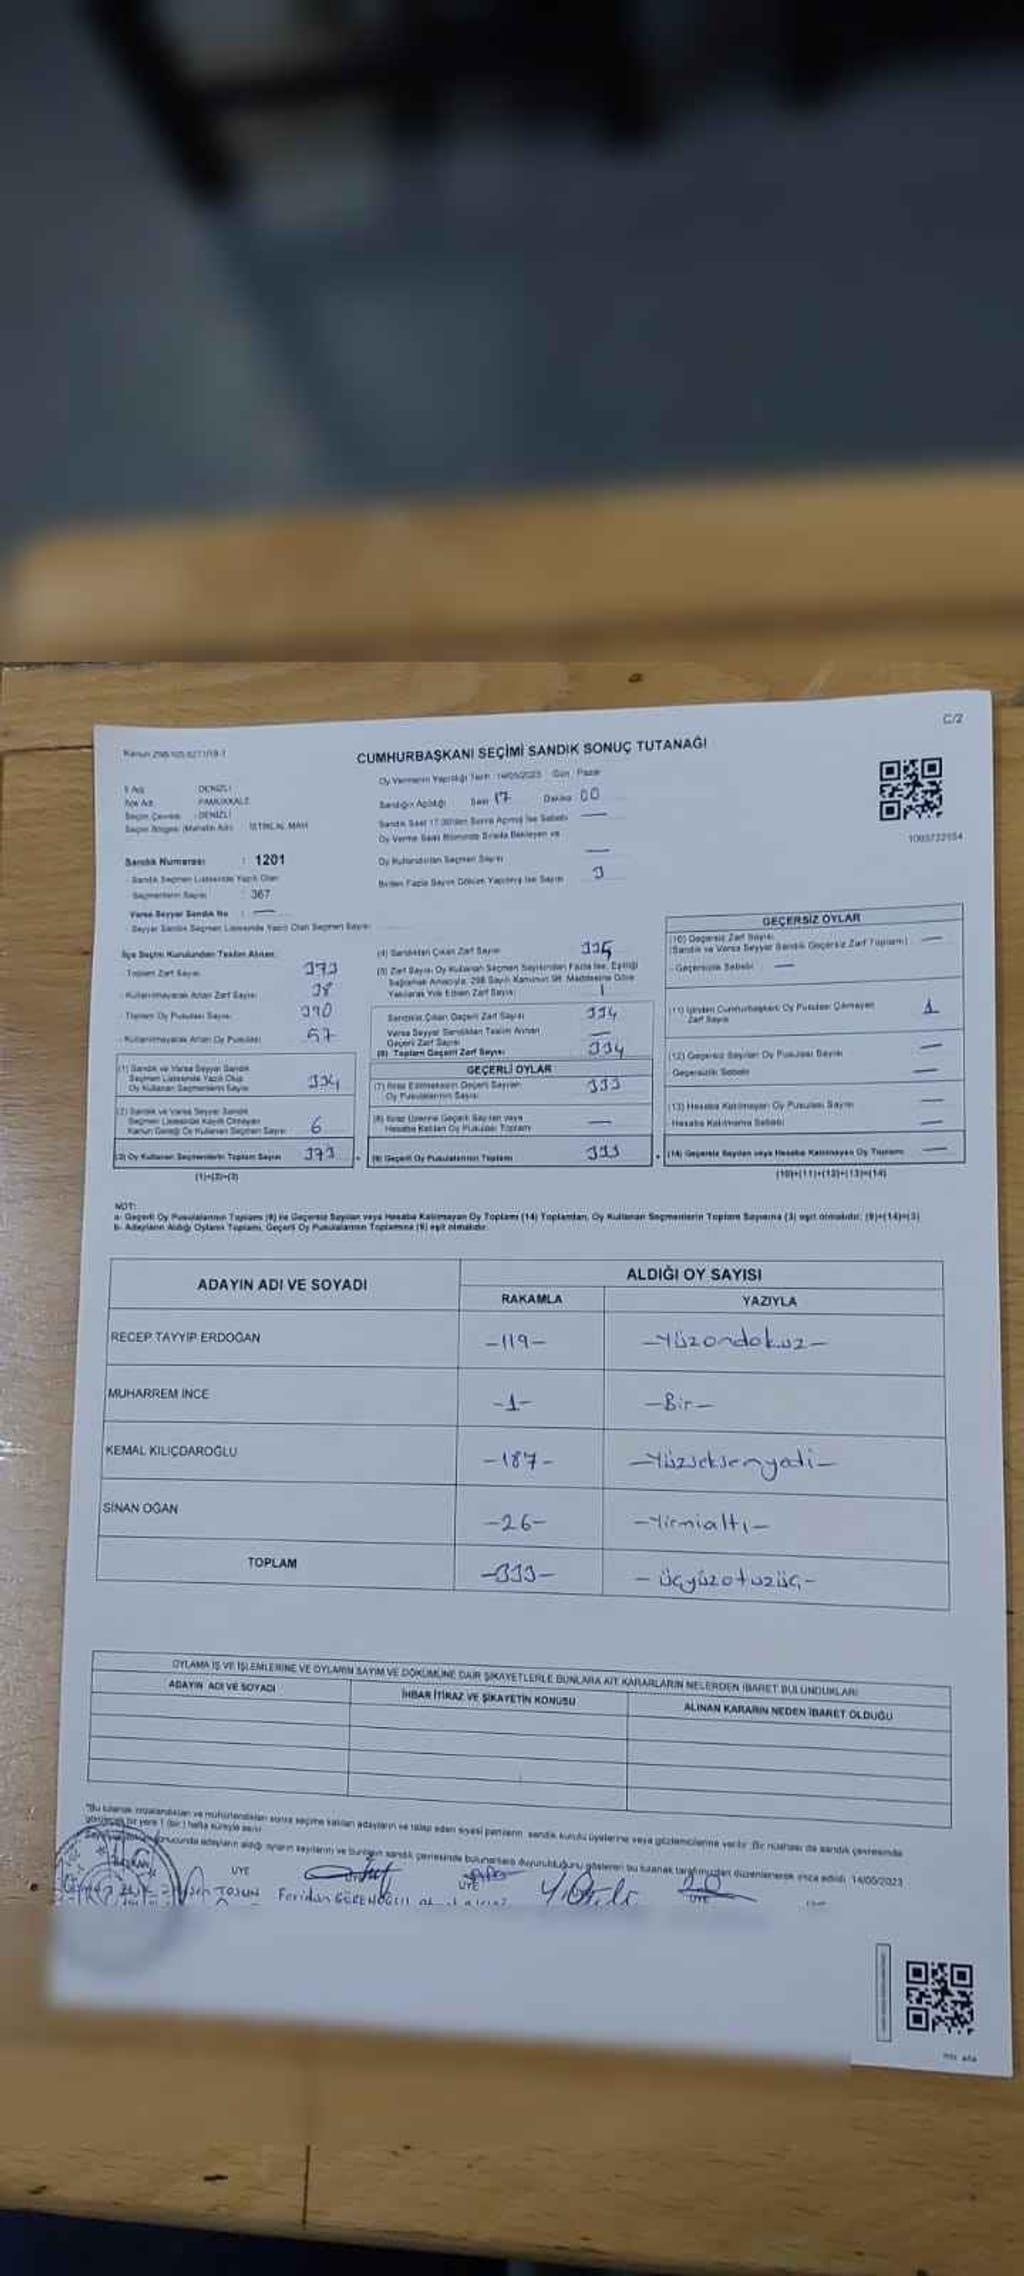 C/2
CUMHURBAŞKANI SEÇİMİ SANDIK SONUÇ TUTANAĞI
Oy Vermenin Yapıldığı Tarih : 14/05/2023 Gün : Pazar
İl Adı : DENİZLİ
İlçe Adı : PAMUKKALE
Seçim Çevresi : DENİZLİ
Seçim Bölgesi (Mahalle Adı) : İSTİKLAL MAH
Sandığın Açıldığı Saat 17 Dakika 00
Sandık Saat 17.00'den Sonra Açılmış İse Sebebi —
Oy Verme Saati Bitiminde Sırada Bekleyen ve
Oy Kullandırılan Seçmen Sayısı —
Birden Fazla Sayım Döküm Yapılmış İse Sayısı 3
1093722154
Sandık Numarası : 1201
Sandık Seçmen Listesinde Yazılı Olan
Seçmenlerin Sayısı : 367
Varsa Seyyar Sandık No : —
- Seyyar Sandık Seçmen Listesinde Yazılı Olan Seçmen Sayısı
İlçe Seçim Kurulundan Teslim Alınan
Toplam Zarf Sayısı 373
- Kullanılmayarak Artan Zarf Sayısı 38
- Toplam Oy Pusulası Sayısı 390
- Kullanılmayarak Artan Oy Pusulası 57
(1) Sandık ve Varsa Seyyar Sandık
Seçmen Listesinde Yazılı Olup
Oy Kullanan Seçmenlerin Sayısı
(2) Sandık ve Varsa Seyyar Sandık
Seçmen Listesinde Kaydı Olmayan
Kanun Gereği Oy Kullanan Seçmen Sayısı 6
(3) Oy Kullanan Seçmenlerin Toplam Sayısı 373
(1)+(2)=(3)
(4) Sandıktan Çıkan Zarf Sayısı 335
(5) Zarf Sayısı Oy Kullanan Seçmen Sayısından Fazla İse, Eşitliği
Sağlamak Amacıyla, 298 Sayılı Kanunun 98. Maddesine Göre
Yakılarak Yok Edilen Zarf Sayısı 1
Sandıktan Çıkan Geçerli Zarf Sayısı 334
Varsa Seyyar Sandıktan Teslim Alınan
Geçerli Zarf Sayısı —
(6) Toplam Geçerli Zarf Sayısı 334
GEÇERLİ OYLAR
(7) İtiraz Edilmeksizin Geçerli Sayılan
Oy Pusulalarının Sayısı 333
(8) İtiraz Üzerine Geçerli Sayılan veya
Hesaba Katılan Oy Pusulası Toplamı —
(9) Geçerli Oy Pusulalarının Toplamı 333
GEÇERSİZ OYLAR
(10) Geçersiz Zarf Sayısı
(Sandık ve Varsa Seyyar Sandık Geçersiz Zarf Toplamı) —
- Geçersizlik Sebebi —
(11) İçinden Cumhurbaşkanı Oy Pusulası Çıkmayan
Zarf Sayısı 1
(12) Geçersiz Sayılan Oy Pusulası Sayısı —
Geçersizlik Sebebi —
(13) Hesaba Katılmayan Oy Pusulası Sayısı —
Hesaba Katılmama Sebebi —
(14) Geçersiz Sayılan veya Hesaba Katılmayan Oy Toplamı —
(10)+(11)+(12)+(13)=(14)
NOT:
a- Geçerli Oy Pusulalarının Toplamı (9) ile Geçersiz Sayılan veya Hesaba Katılmayan Oy Toplamı (14) Toplamları, Oy Kullanan Seçmenlerin Toplam Sayısına (3) eşit olmalıdır. (9)+(14)=(3)
b- Adayların Aldığı Oyların Toplamı, Geçerli Oy Pusulalarının Toplamına (9) eşit olmalıdır.
ADAYIN ADI VE SOYADI
ALDIĞI OY SAYISI
RAKAMLA YAZIYLA
RECEP TAYYİP ERDOĞAN -119- -Yüzondokuz-
MUHARREM İNCE -1- -Bir-
KEMAL KILIÇDAROĞLU -187- -Yüzseksenyedi-
SİNAN OĞAN -26- -Yirmialtı-
TOPLAM -333- -üçyüzotuzüç-
OYLAMA İŞ VE İŞLEMLERİNE VE OYLARIN SAYIM VE DÖKÜMÜNE DAİR ŞİKAYETLERLE BUNLARA AİT KARARLARIN NELERDEN İBARET BULUNDUKLARI
ADAYIN ADI VE SOYADI
İHBAR İTİRAZ VE ŞİKAYETİN KONUSU
ALINAN KARARIN NEDEN İBARET OLDUĞU
"Bu tutanak imzalandıktan ve mühürlendikten sonra seçime katılan adayların ve talep eden siyasi partilerin sandık kurulu üyelerine veya gözlemcilerine verilir. Bir nüshası da sandık çevresinde
görülecek bir yere 1 (bir) hafta süreyle asılır.
sonucunda adayların aldığı oyların sayılarını ve bunların sandık çevresinde bulunanlara duyurulduğunu gösteren bu tutanak tarafımızdan düzenlenerek imza edildi. 14/05/2023
ÜYE ÜYE ÜYE
TOSUN